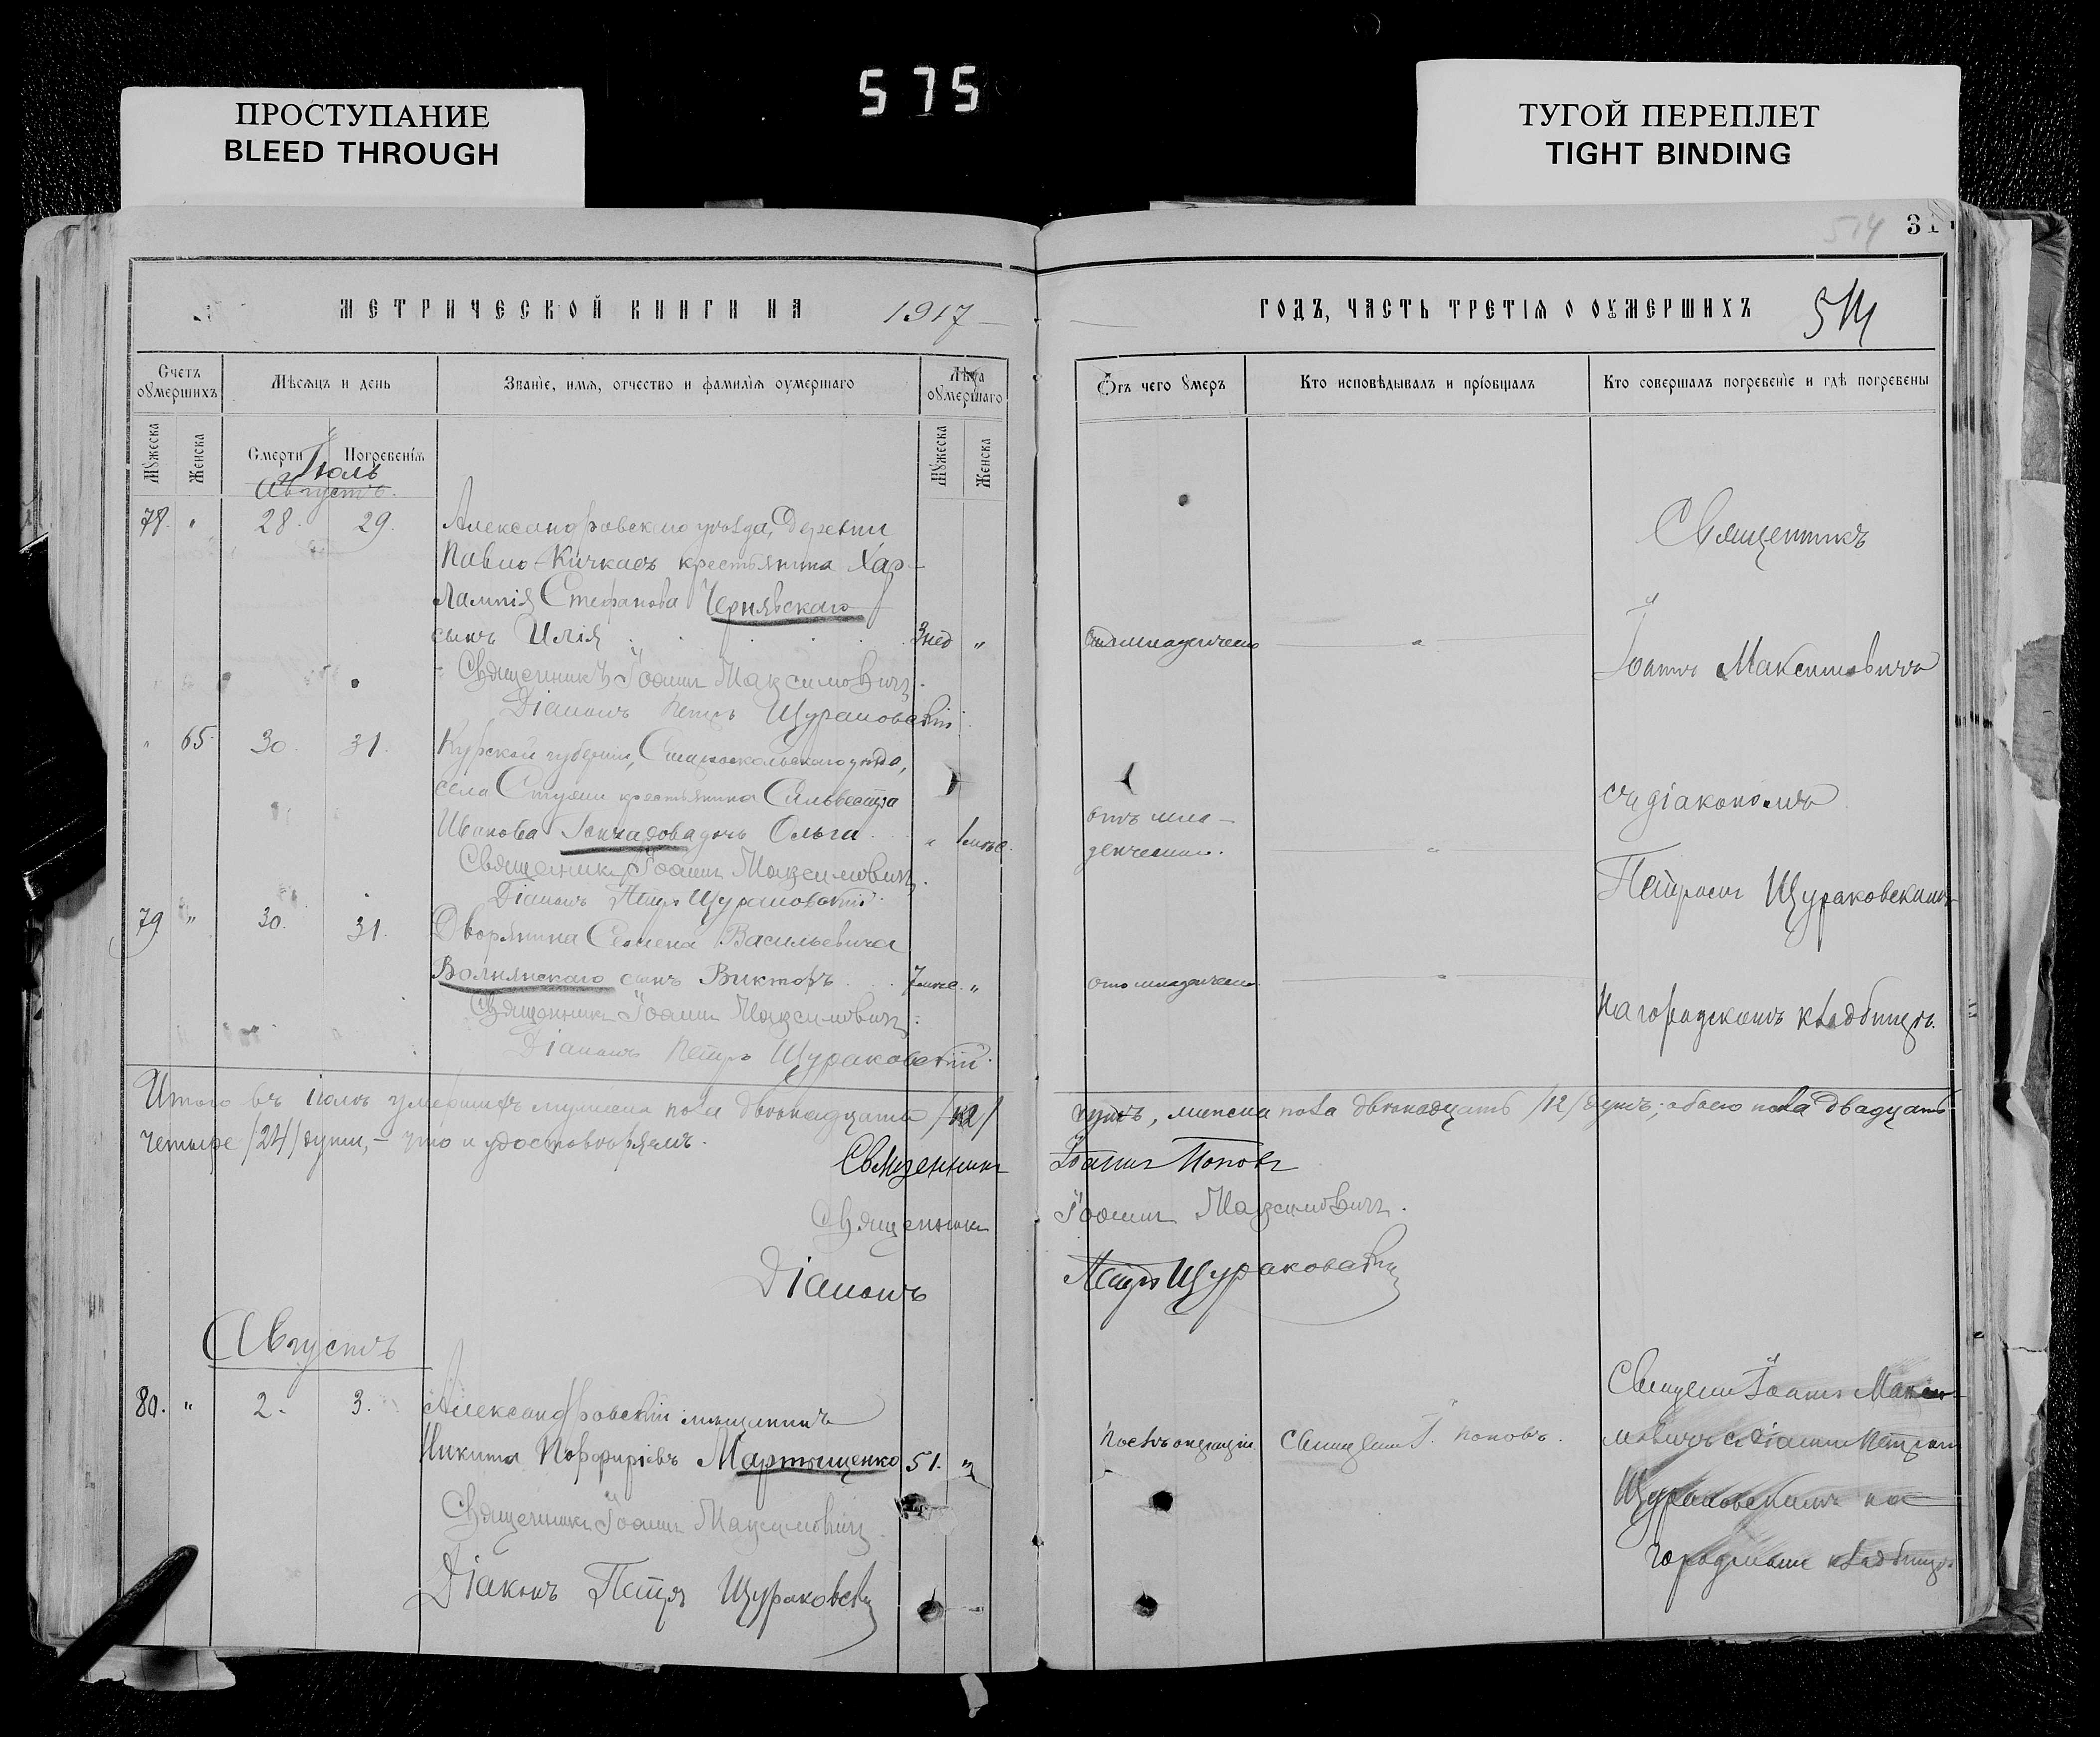 575
ПРОСТУПАНИЕ
BLEED THROUGH
ТУГОЙ ПЕРЕПЛЕТ
TIGHT BINDING
514
31
МЕТРИЧЕСКОЙ КНИГИ НА 1917
ГОДЪ, ЧАСТЬ ТРЕТІѦ О ОУМЕРШИХЪ
514
Счетъ оумершихъ
Мѣсяцъ и день
Званіе, имя, отчество и фамилія оумершаго
Лѣта оумершаго
Мужеска
Женска
Смерти
Погребенія
Мужеска
Женска
Отъ чего умеръ
Кто исповѣдывалъ и пріобщалъ
Кто совершалъ погребеніе и гдѣ погребены
Іюль
Августъ.
78. " 28. 29. Александровскаго уѣзда, деревни
Павло-Кичкасъ крестьянина Хар-
лампія Стефанова Чернявскаго
сынъ Илія 3 нед "
Священникъ Іоаннъ Максимовичъ.
Діаконъ Петръ Щураковскій.
" 65. 30. 31. Курской губерніи, Старооскольскаго уѣзда,
села крестьянина Сильвестра
Иванова дочь Ольга. " 1 мѣс.
Священникъ Іоаннъ Максимовичъ.
Діаконъ Петръ Щураковскій.
79 " 30. 31. Дворянина Семена Васильевича
Волнянскаго сынъ Викторъ 7 мѣс. "
Священникъ Іоаннъ Максимовичъ.
Діаконъ Петръ Щураковскій.
отъ младенческ
отъ мла-
денческ.
отъ младенческ
Священникъ
Іоаннъ Максимовичъ
съ діакономъ
Петромъ Щураковскимъ
на городскомъ кладбищѣ.
Итого въ іюлѣ умершихъ мужеска пола двѣнадцать /12/
душъ, женска пола двѣнадцать /12/ душъ; обоего пола двадцать
четыре /24/ души, – что и удостовѣряемъ.
Священникъ Іоаннъ Поповъ
Священникъ Іоаннъ Максимовичъ.
Діаконъ Петръ Щураковскій
Августъ
80. " 2. 3. Александровскій мѣщанинъ
Никита Порфиріевъ Мартыщенко 51. "
Священникъ Іоаннъ Максимовичъ
Діаконъ Петръ Щураковскій
Послѣ операціи
Священ. І. Поповъ.
Священ Іоаннъ Макси-
мовичъ съ діакон Петромъ
Щураковскимъ на
городскомъ кладбищѣ.